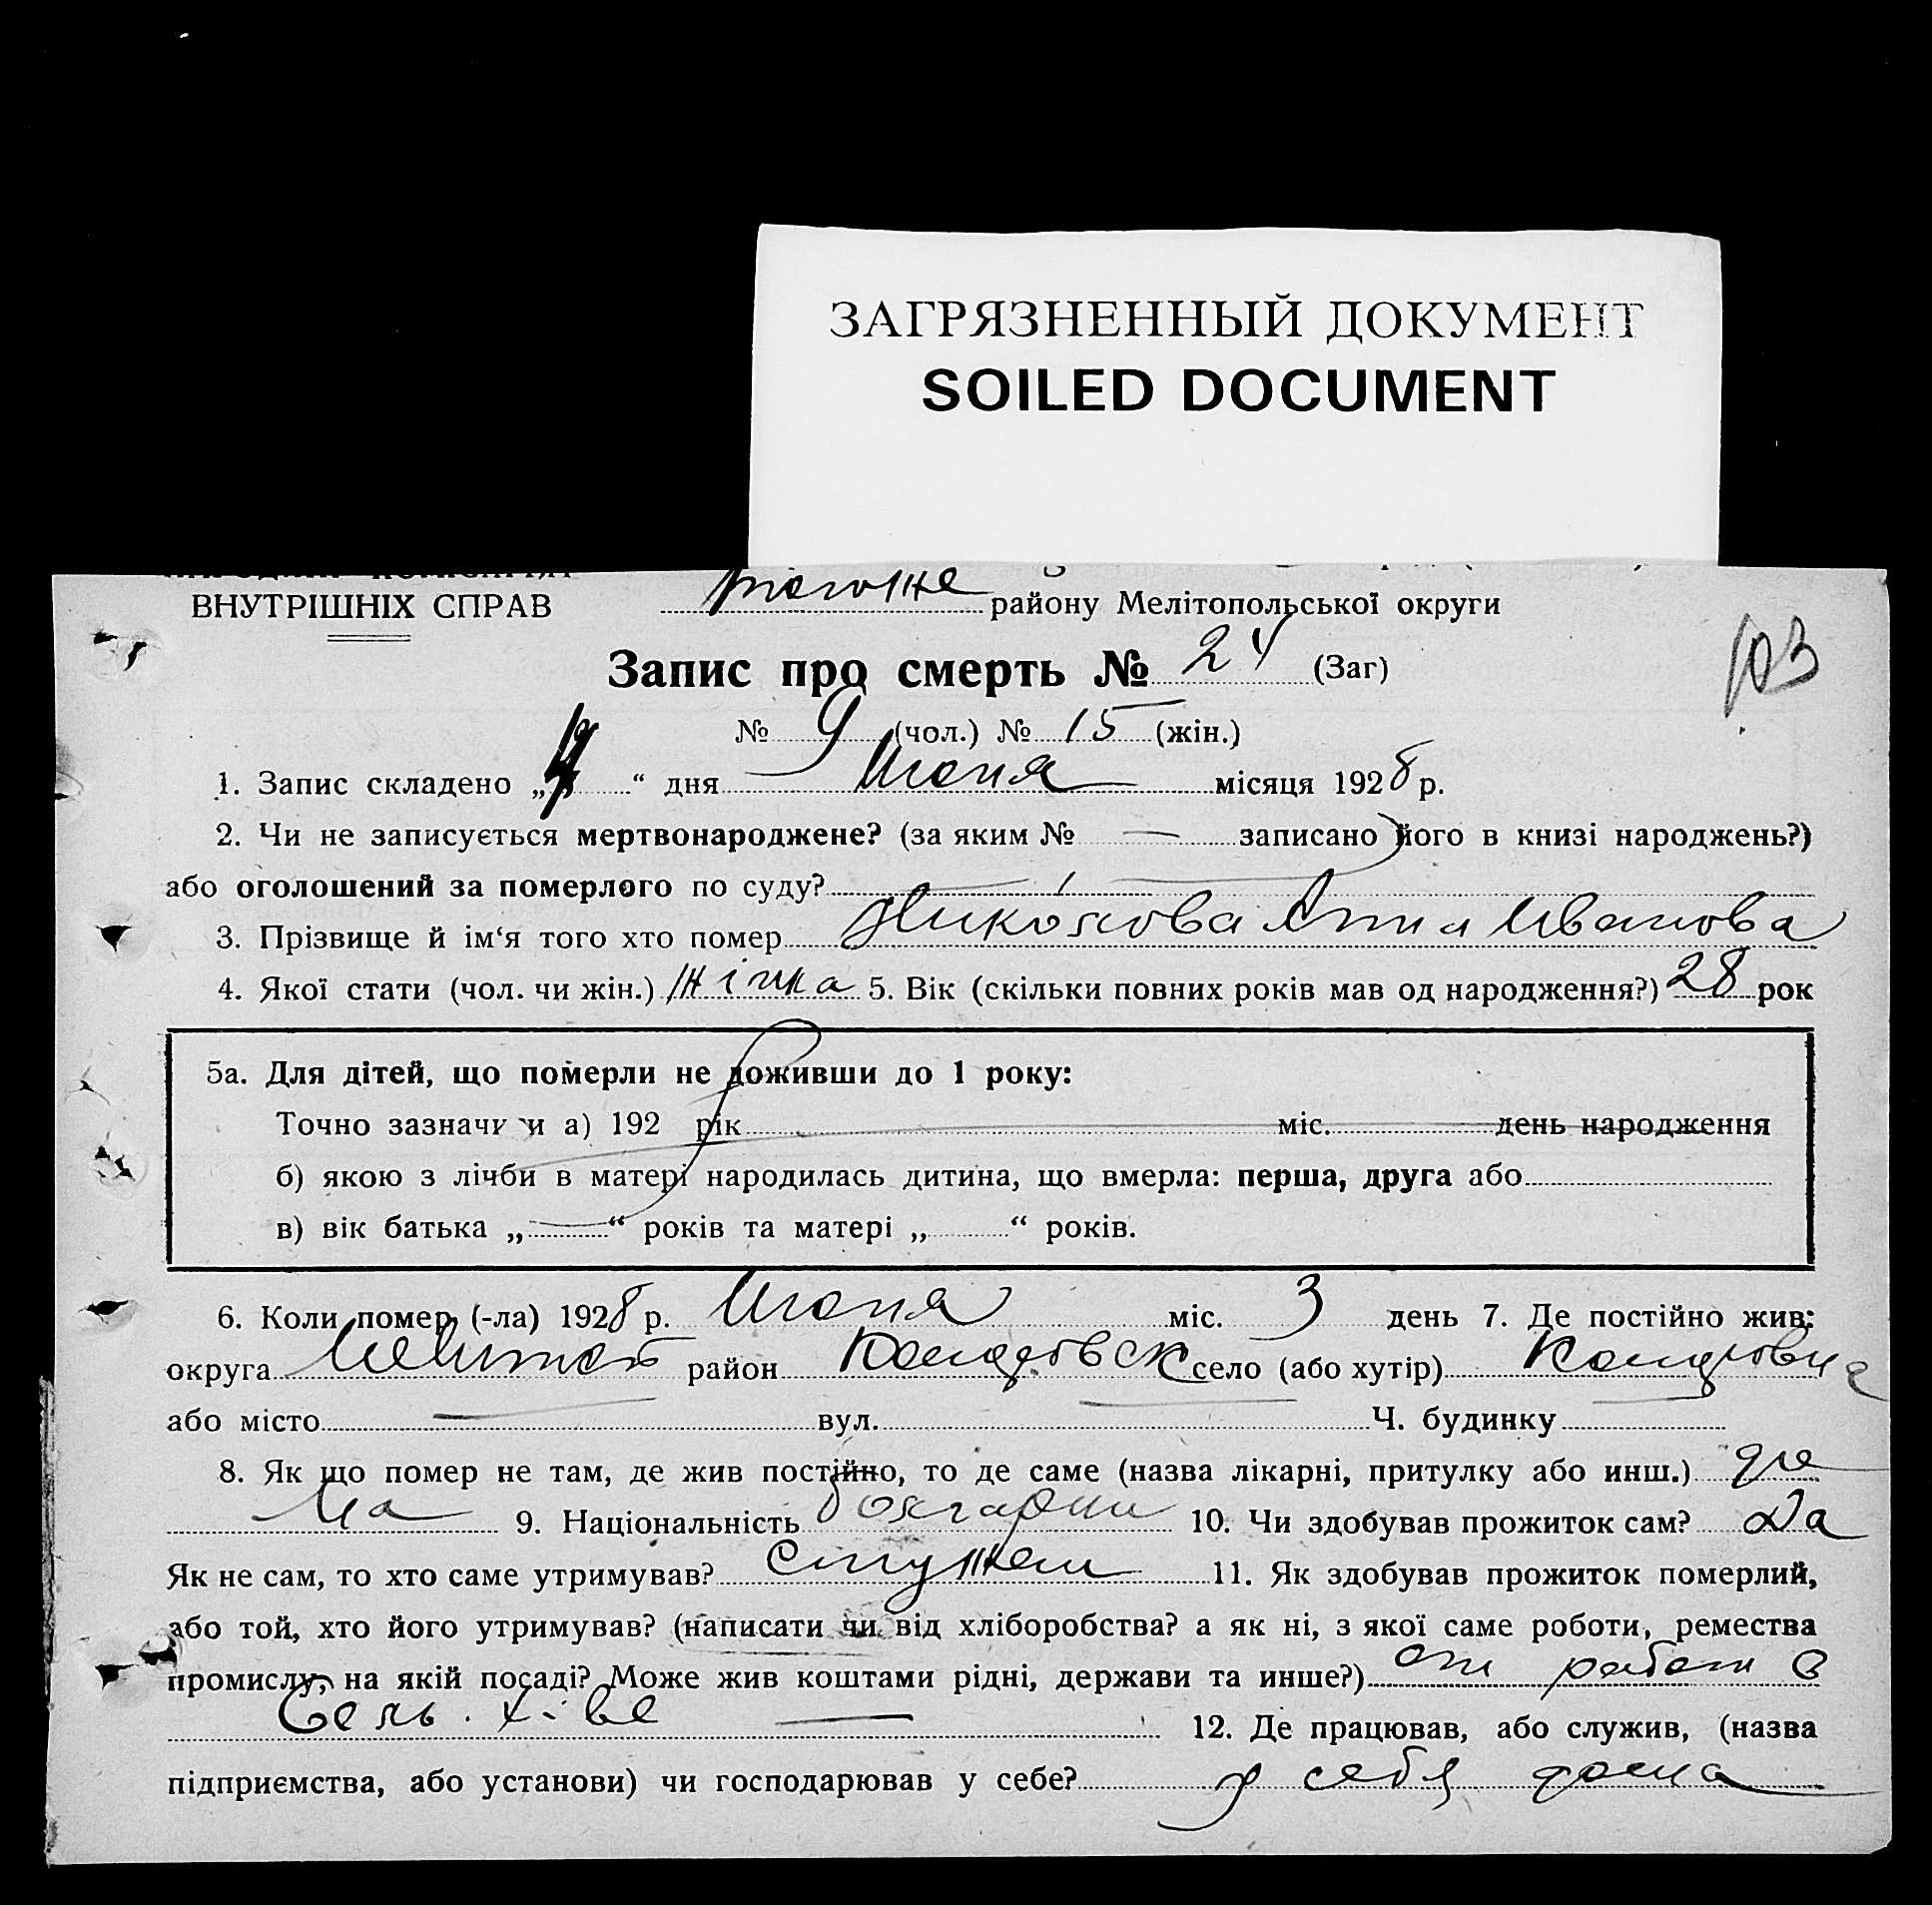 ЗАГРЯЗНЕННЫЙ ДОКУМЕНТ
SOILED DOCUMENT
ВНУТРІШНІХ СПРАВ
району Мелітопольської округи
103
Запис про смерть № 24 (Заг)
№ 9 (чол.) № 15 (жін.)
1. Запис складено „ “ дня Июня місяця 1928 р.
2. Чи не записується мертвонароджене? (за яким № — записано його в книзі народжень?)
або оголошений за померлого по суду?
3. Прізвище й ім‘я того хто помер Николова Анна Иванова
4. Якої стати (чол. чи жін.) Жінка 5. Вік (скільки повних років мав од народження?) 28 рок
5а. Для дітей, що померли не доживши до 1 року:
Точно зазначи и а) 192 рік міс. день народження
б) якою з лічби в матері народилась дитина, що вмерла: перша, друга або
в) вік батька „ “ років та матері „ “ років.
6. Коли помер (-ла) 1928 р. Июня міс. 3 день 7. Де постійно жив:
округа Мелитоп район село (або хутір)
або місто вул. Ч. будинку
8. Як що помер не там, де жив постійно, то де саме (назва лікарні, притулку або инш.) до
ма 9. Національність болгарин 10. Чи здобував прожиток сам? Да
Як не сам, то хто саме утримував? 11. Як здобував прожиток померлий,
або той, хто його утримував? (написати чи від хліборобства? а як ні, з якої саме роботи, ремества
промислу, на якій посаді? Може жив коштами рідні, держави та инше?) от работ в
Сель. х-ве — 12. Де працював, або служив, (назва
підприємства, або установи) чи господарював у себе? у себя дома